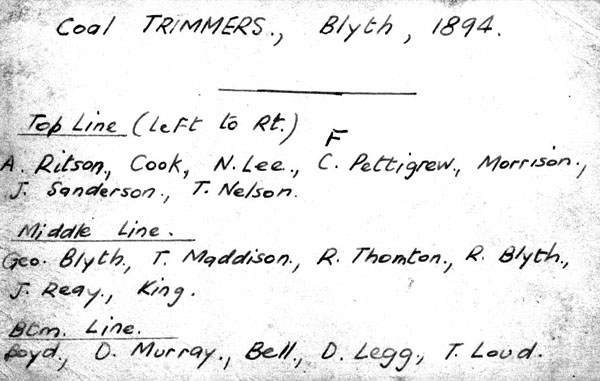 Coal TRIMMERS., Blyth, 1894.
Top Line (Left to Rt.)
F
A. Ritson, Cook, N. Lee., C. Pettigrew., Morrison.,
J. Sanderson., T. Nelson.
Middle Line.
Geo. Blyth., T. Maddison., R. Thomton., R. Blyth.,
J. Reay., King.
Btm. Line.
Boyd., D. Murray., Bell., D. Legg., T. Loud.